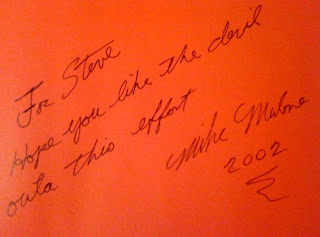 For Steve
Hope you like the devil
outa this effort
Mike Malone
2002